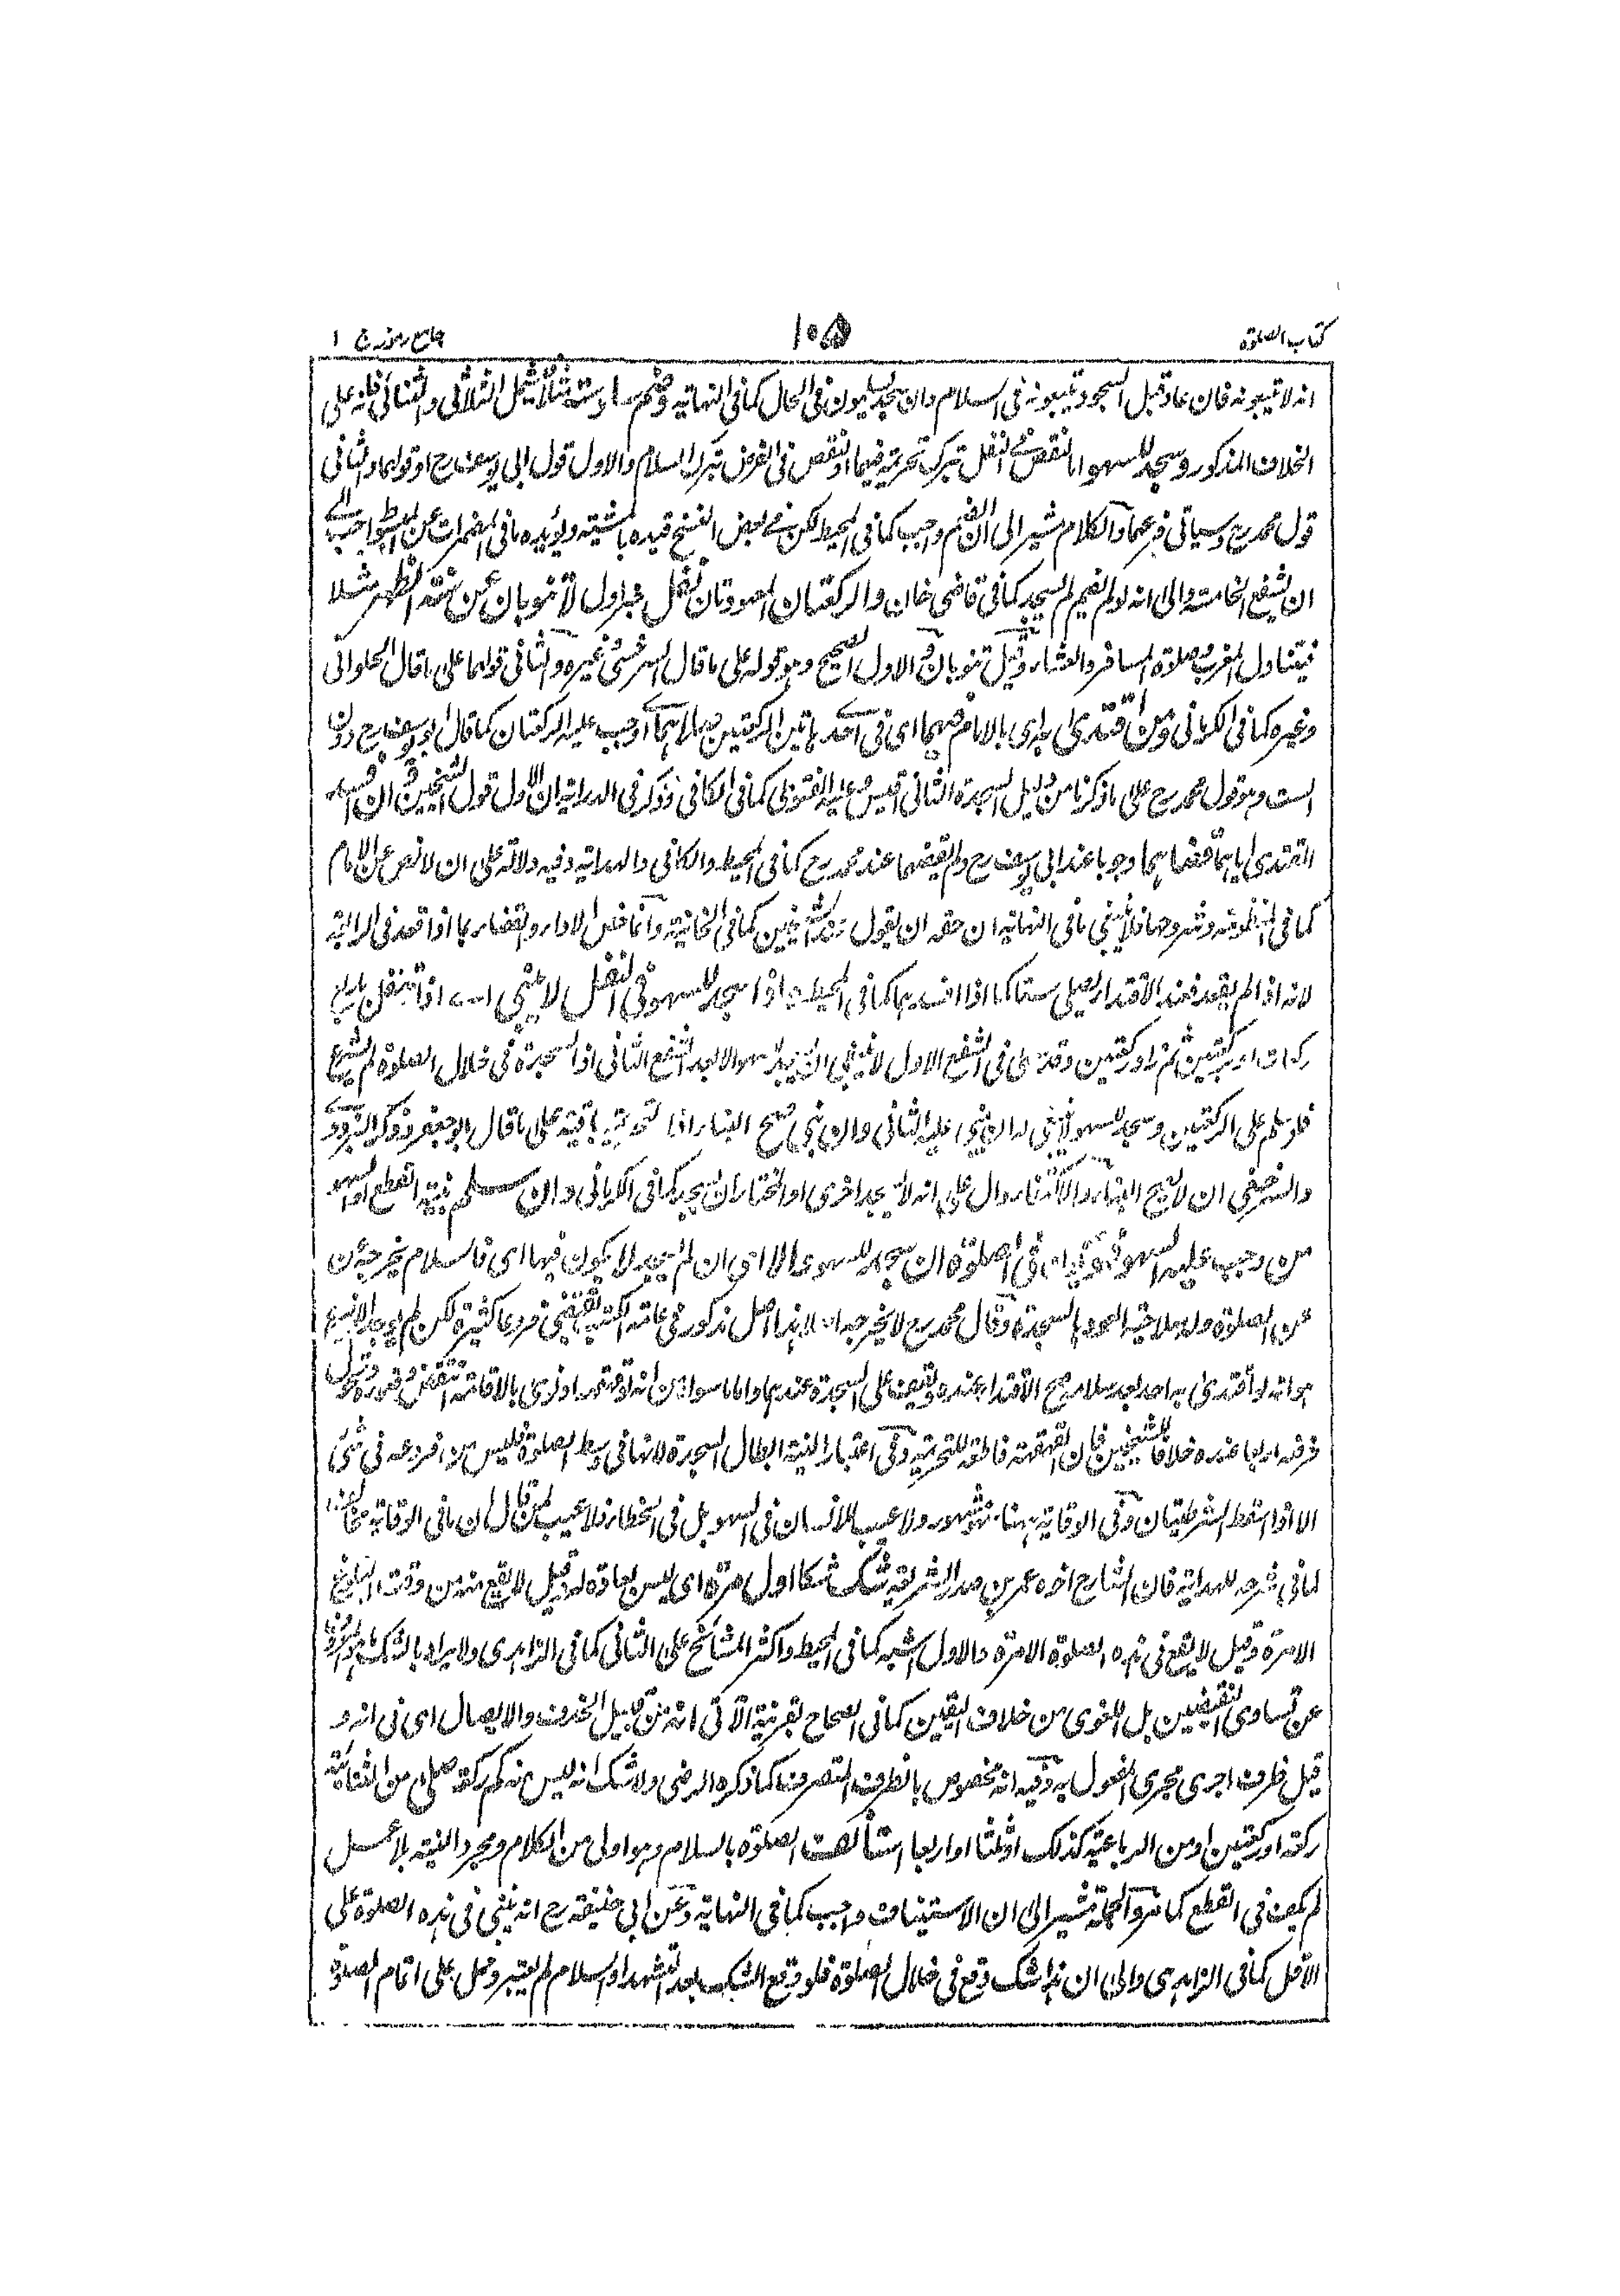 كتاب الصلوة
١٠٥
جامع رموز ج ١
انه لا يتبعونه فان عاد قبل السجود يتبعونه فى السلام وان سجد يسلمون فى الحال كما فى النهاية وضم سادسة مثلا ليشمل الثلاثى والثنائى فانه على
الخلاف المذكور وسجد للسهو اما لنقص فى النفل بترك تحريمة فيها او لنقص فى الفرض بترك السلام والاول قول ابى يوسف رح او قولهما والثانى
قول محمد رح وسياتى فرعهما والكلام مشير الى ان الضم واجب كما فى المحيط لكن فى بعض النسخ قيده بالمشية ويؤيده ما فى المضمرات عن المبسوط احب الى
ان يشفع الخامسة والى انه لو لم يضم لم يسجد كما فى قاضى خان والركعتان المعهودتان نفل خبر اول لا تنوبان عن سنة الظهر مثلا
فيتناول المغرب وصلاة المسافر والعشاء وقيل تنوبان والاول الصحيح وهو قوله على ما قال السرخسى وغيره والثانى قولهما على ما قال الحلوانى
وغيره كما فى الكرمانى ومن اقتدى به اى بالامام فيهما اى فى احد هاتين الركعتين صلاهما اى وجب عليه الركعتان كما قال ابو يوسف رح دون
الست وهو قول محمد رح على ما ذكرنا من دليل السجدة الثانى اقيس وعليه الفتوى كما فى الكافى وذكر فى الهداية ان الاول قول الشيخين وان افسد
المقتدى اياهما قضاهما وجوبا عند ابى يوسف رح ولم يقضهما عند محمد رح كما فى المحيط والكافى والهداية وفيه دلالة على ان لا نص عن الامام
كما فى المنظومة وشروحها فلا ينبغى ما فى النهاية ان حقه ان يقول عند الشيخين كما فى الخانية وانما خص الاداء والقضاء بما اذا قعد فى الرابعة
لانه اذا لم يقعد فعند الاقتداء يصلى ستا كما اذا افسدهما كما فى المحيط واذا سجد للسهو فى النفل لا يبنى اى اذا تنفل باربع
ركعات او بركعتين ثم زاد ركعتين وقد سهى فى الشفع الاول لا ينبغى ان يسجد للسهو الا بعد الشفع الثانى اذ السجدة فى خلال الصلوة لم يشرع
فلو سلم على الركعتين وسجد للسهو لا يبنى عليه الثانى وان بنى صح البناء اذ التحريمة باقية على ما قال ابو جعفر وذكر البزدوى
والسرخسى ان لا يصح البناء دال على انه لا يسجد اخرى والمختار ان يسجد كما فى الكرمانى وان سلم بنية القطع او السهو
من وجب عليه السهو فهو فى الصلوة ان سجد للسهو والا اى ان لم يسجد لا يكون فيها اى فالسلام يخرجه عن
عن الصلوة وله صلاحية العود بالسجدة وقال محمد رح لا يخرجه اصلا هذا اصل مذكور فى عامة الكتب يقتضى فروعا كثيرة لكن لم يوجد الا فرع
هو انه لو اقتدى به احد بعد سلامه صح الاقتداء عنده ويقف على السجدة عندهما واما ما سواه من انه لو قهقه او نوى بالاقامة انتقض وضوؤه وتحول
فرضه اربعا عنده خلافا للشيخين فان القهقهة قاطعة للتحريمة وفى اعتبار النية ابطال السجدة لانها فى وسط الصلوة فليس من فروعه فى شئ
الا اذا اسقط الشرطيتان وفى الوقاية ههنا سهو مشهور ولا عيب للانسان فى السهو بل فى الخطاء فلا عيب
لما فى شرحه للهداية فان الشارح اخره عمر بن صدر الشريعة شك شكا اول مرة اى ليس بعادة له وقيل لا يقع منذ من وقت البلوغ
الا مرة وقيل لا يقع فى هذه الصلوة الا مرة والاول اشبه كما فى المحيط واكثر المشائخ على الثانى كما فى الزاهدى ولا يراد بالشك
عن تساوى النقيضين بل اللغوى من خلاف اليقين كما فى الصحاح بقرينة الآتى انه من قبيل الحذف والايصال اى فى انه و
قيل ظرف اجرى مجرى المفعول به وفيه انه مخصوص بالظرف المتصرف كما ذكره الرضى ولا شك انه ليس منه كم ركعة صلى من الثنائية
ركعة او ركعتين او من الرباعية كذلك او ثلثا او اربعا استأنف الصلوة بالسلام وهو اولى من الكلام ومجرد النية بلا عمل
لم يكف فى القطع كما مر والجملة مشير الى ان الاستيناف واجب كما فى النهاية وعن ابى حنيفة رح انه يبنى فى هذه الصلوة على
الاقل كما فى الزاهدى والى ان هذا شك وقع فى خلال الصلوة فلو وقع الشك بعد التشهد او السلام لم يعتبر وحمل على اتمام الصلوة